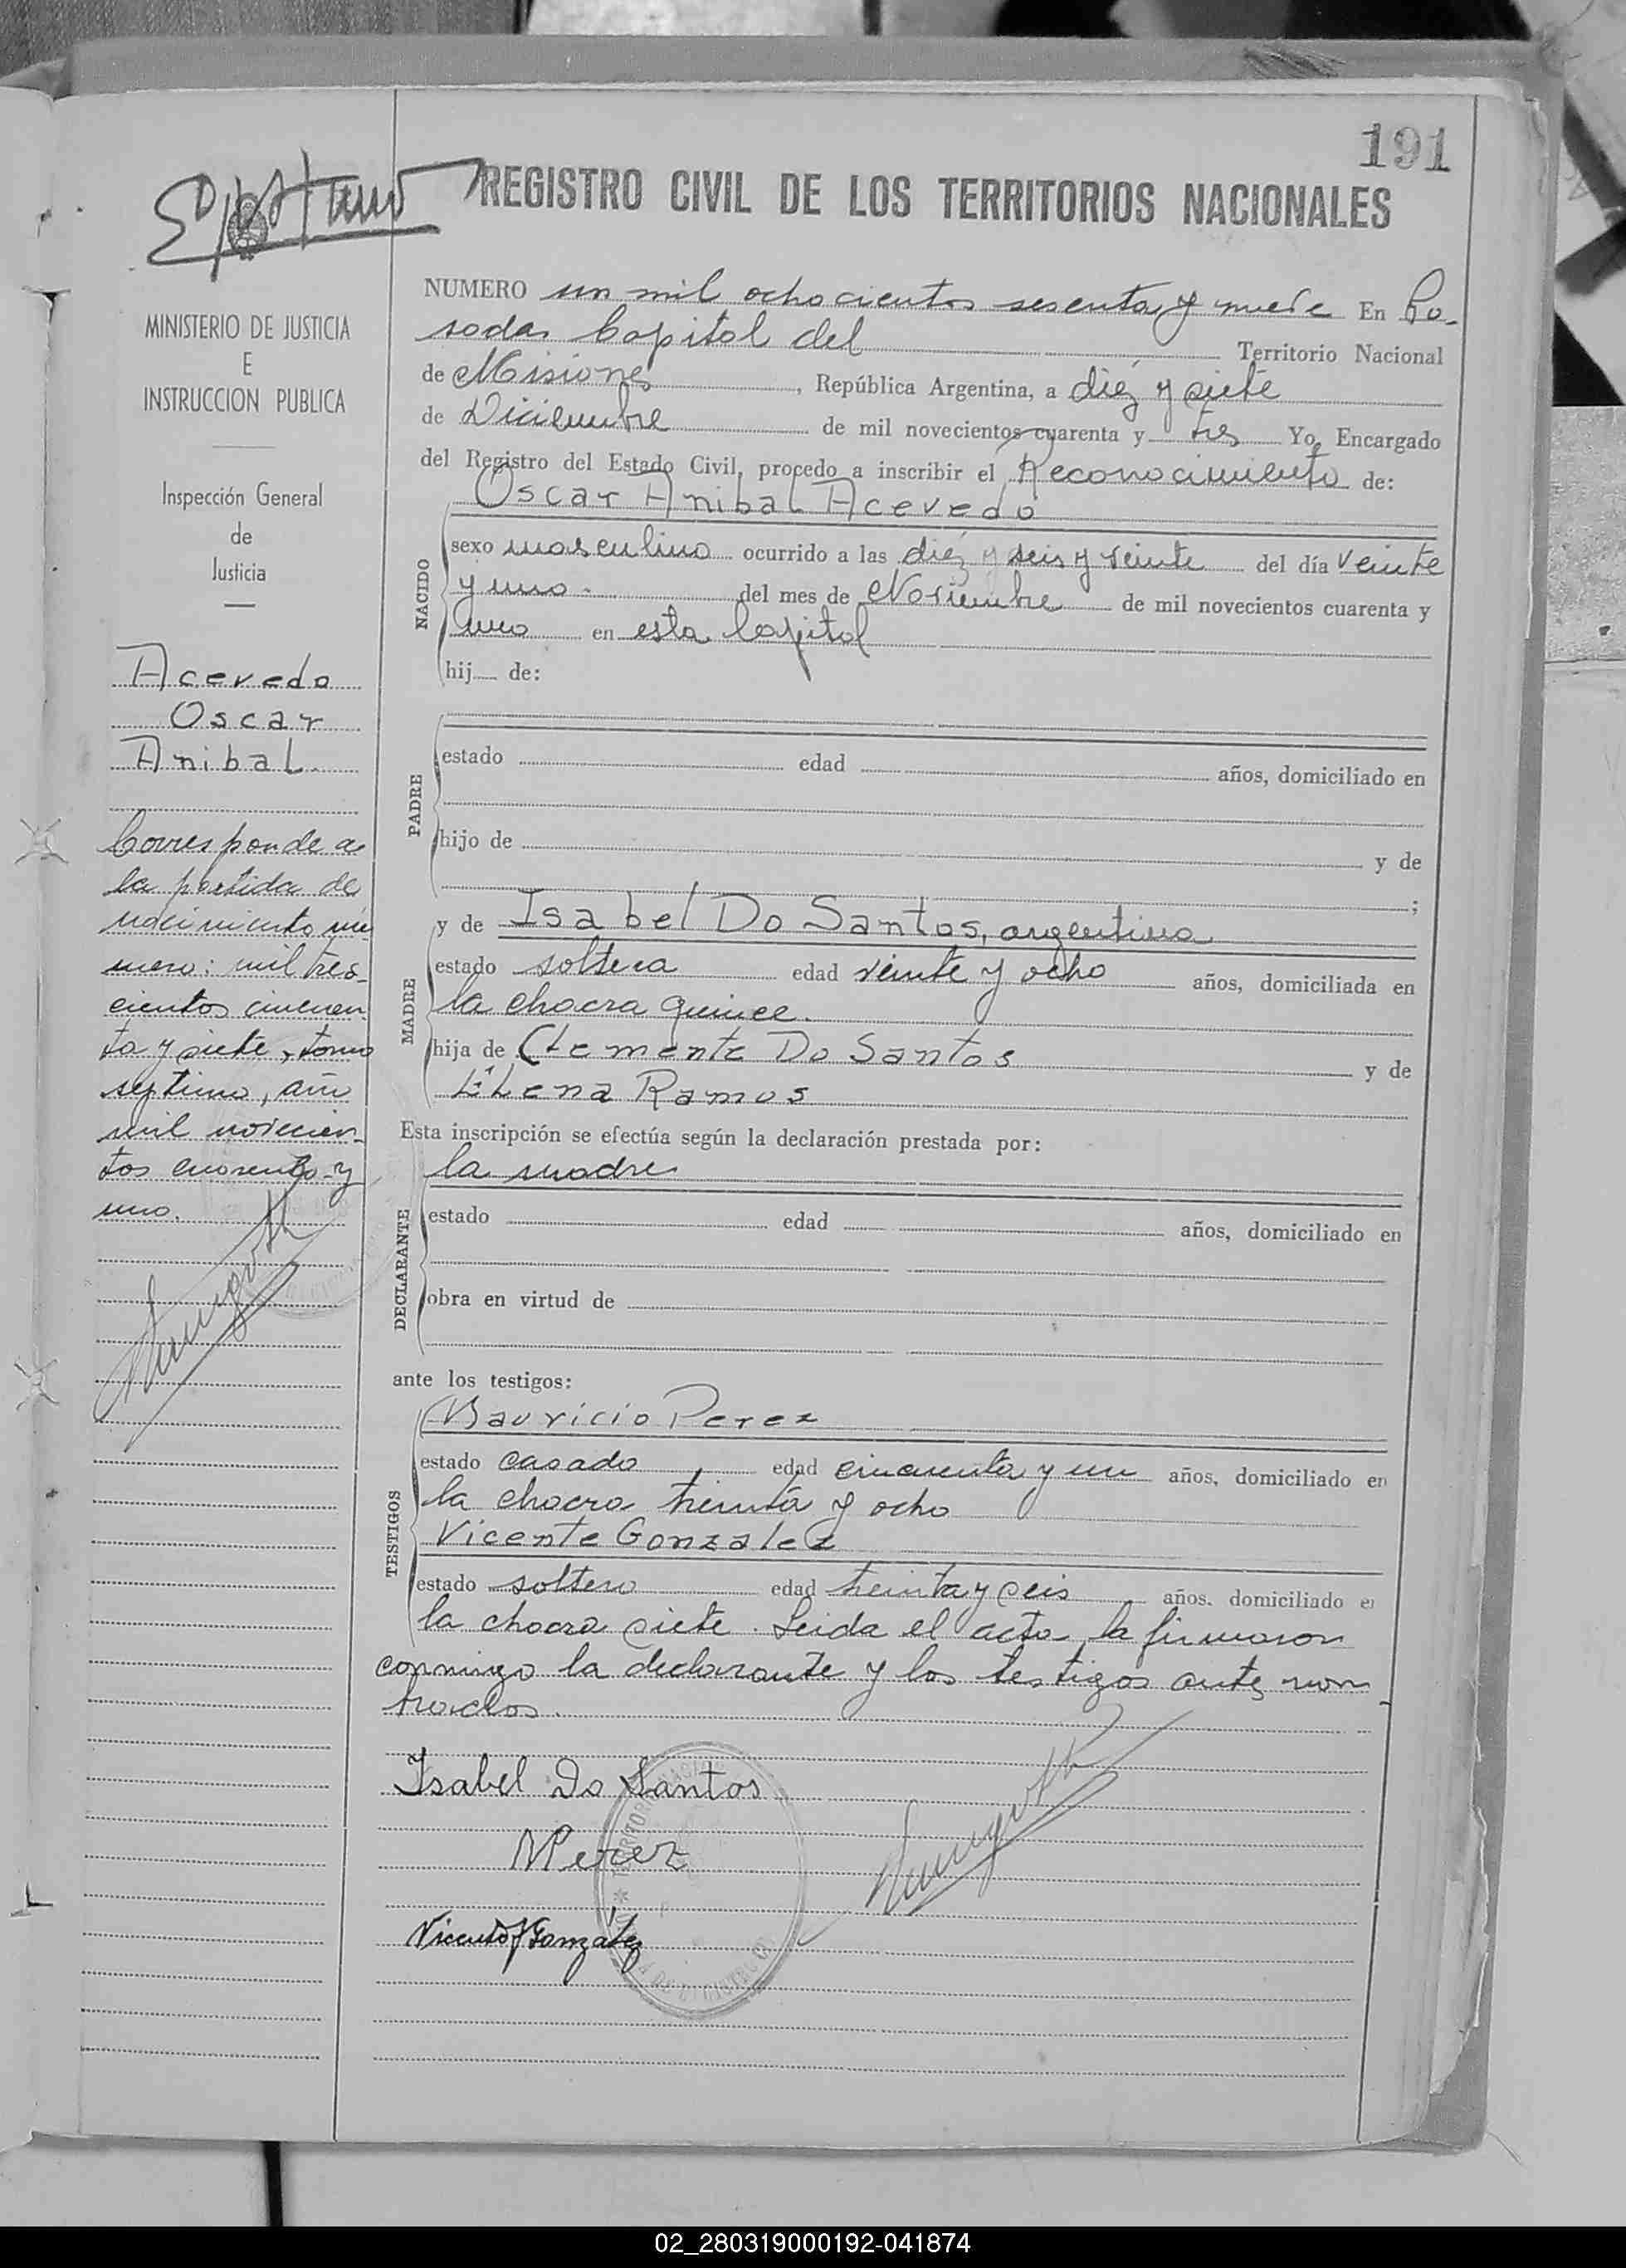 191
REGISTRO CIVIL DE LOS TERRITORIOS NACIONALES
MINISTERIO DE JUSTICIA
E
INSTRUCCION PUBLICA
Inspección General
de
Justicia
Acevedo
Oscar
Anibal.
Corresponde a
la partida de
nacimiento nú
mero: mil tres-
cientos cincuen
ta y siete, tomo
septimo, año
mil novecien-
tos cuarenta y
uno.
NUMERO un mil ochocientos sesenta y nueve En Po-
sadas Capital del Territorio Nacional
de Misiones, República Argentina, a diéz y siete
de Diciembre de mil novecientos cuarenta y tres Yo, Encargado
del Registro del Estado Civil, procedo a inscribir el Reconocimiento de:
Oscar Anibal Acevedo
NACIDO
sexo masculino ocurrido a las diéz y seis y veinte del día veinte
y uno. del mes de Noviembre de mil novecientos cuarenta y
uno en esta Capital
hij de:
PADRE
estado edad años, domiciliado en
hijo de y de
;
MADRE
y de Isabel Do Santos, argentina
estado soltera edad veinte y ocho años, domiciliada en
la chacra quince.
hija de Clemente Do Santos y de
Elena Ramos
Esta inscripción se efectúa según la declaración prestada por:
la madre
DECLARANTE
estado edad años, domiciliado en
obra en virtud de
ante los testigos:
TESTIGOS
Mauricio Perez
estado casado edad cincuenta y un años, domiciliado en
la chacra treinta y ocho
Vicente Gonzalez
estado soltero edad treinta y seis años, domiciliado e
la chacra siete. Leida el acta, la firmaron
conmigo la declarante y los testigos ante nom
brados.
Isabel Do Santos
MPerez
Vicente González
02_280319000192-041874